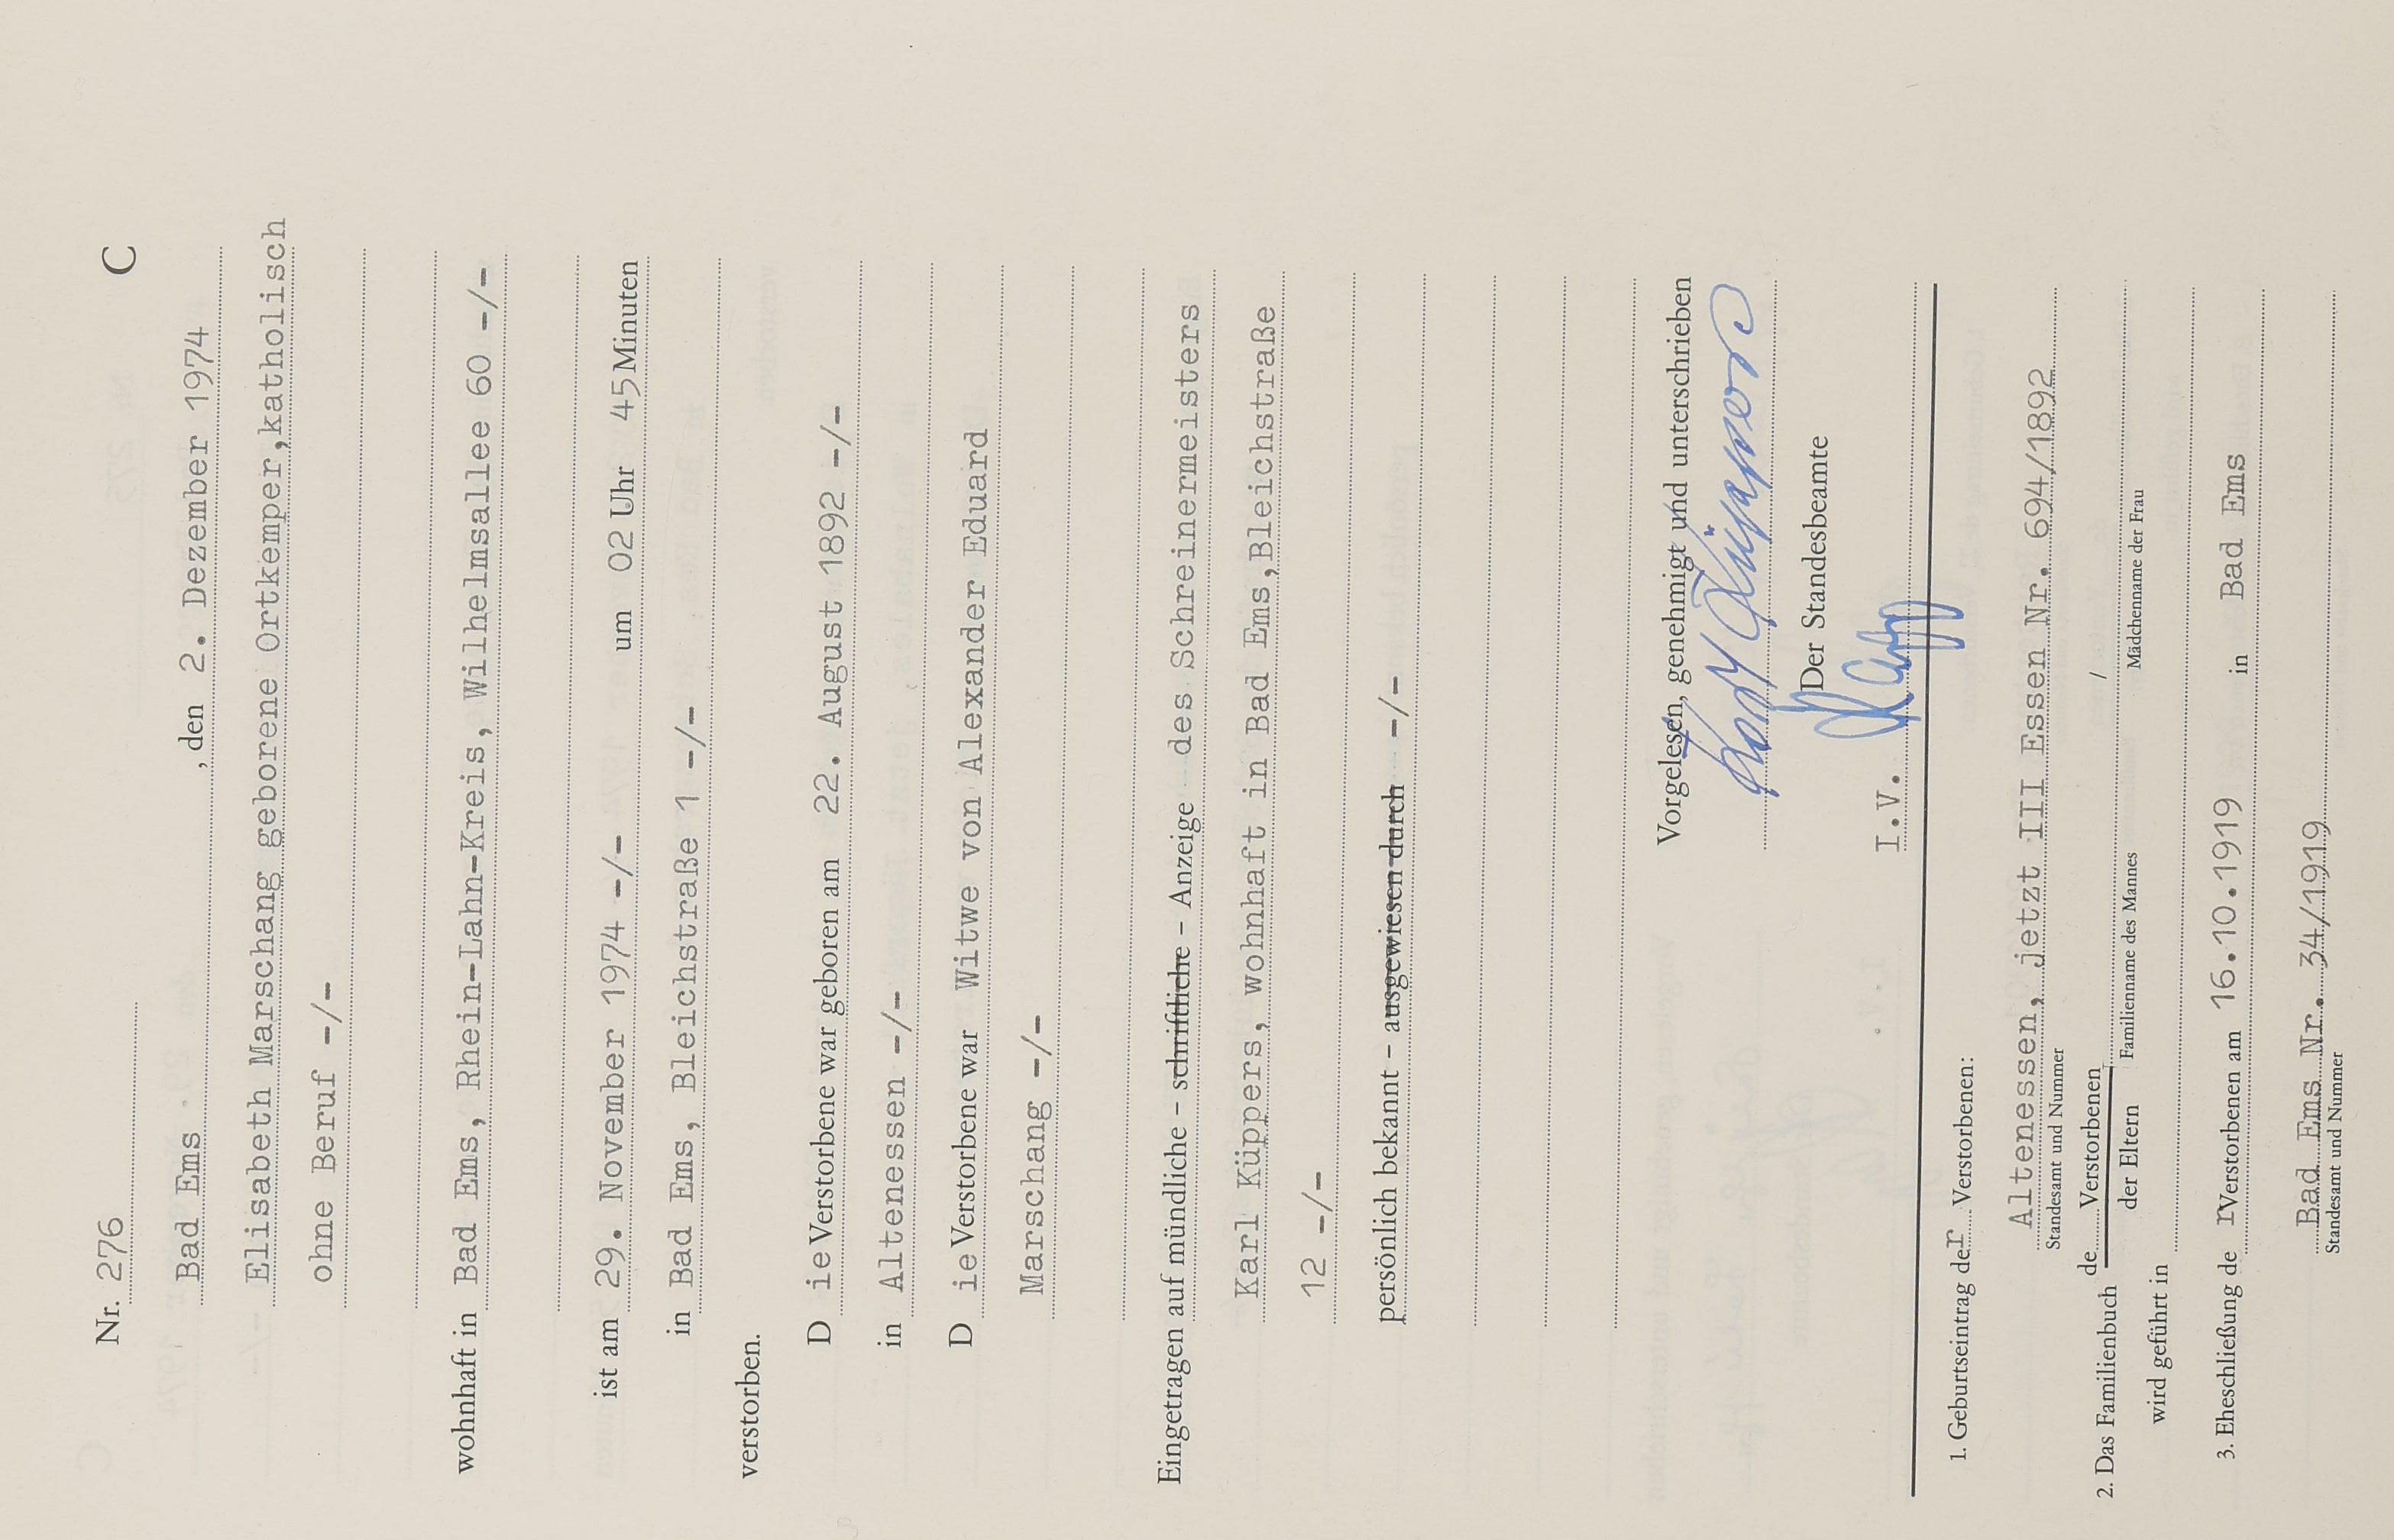 Nr. 276 C
Bad Ems , den 2. Dezember 1974
Elisabeth Marschang geborene Ortkemper,katholisch
ohne Beruf -/-
wohnhaft in Bad Ems, Rhein-Lahn-Kreis, Wilhelmsallee 60 -/-
ist am 29. November 1974 -/- um 02 Uhr 45 Minuten
in Bad Ems, Bleichstraße 1 -/-
verstorben.
D ie Verstorbene war geboren am 22. August 1892 -/-
in Altenessen -/-
D ie Verstorbene war Witwe von Alexander Eduard
Marschang -/-
Eingetragen auf mündliche – schriftliche – Anzeige des Schreinermeisters
Karl Küppers, wohnhaft in Bad Ems,Bleichstraße
12 -/-
persönlich bekannt – ausgewiesen durch -/-
Vorgelesen, genehmigt und unterschrieben
Karl Küppers
Der Standesbeamte
I.V.
1. Geburtseintrag der Verstorbenen:
Altenessen, jetzt III Essen Nr. 694/1892
Standesamt und Nummer
2. Das Familienbuch de Verstorbenen /
der Eltern Familienname des Mannes Mädchenname der Frau
wird geführt in
3. Eheschließung de r Verstorbenen am 16.10.1919 in Bad Ems
Bad Ems Nr. 34/1919
Standesamt und Nummer